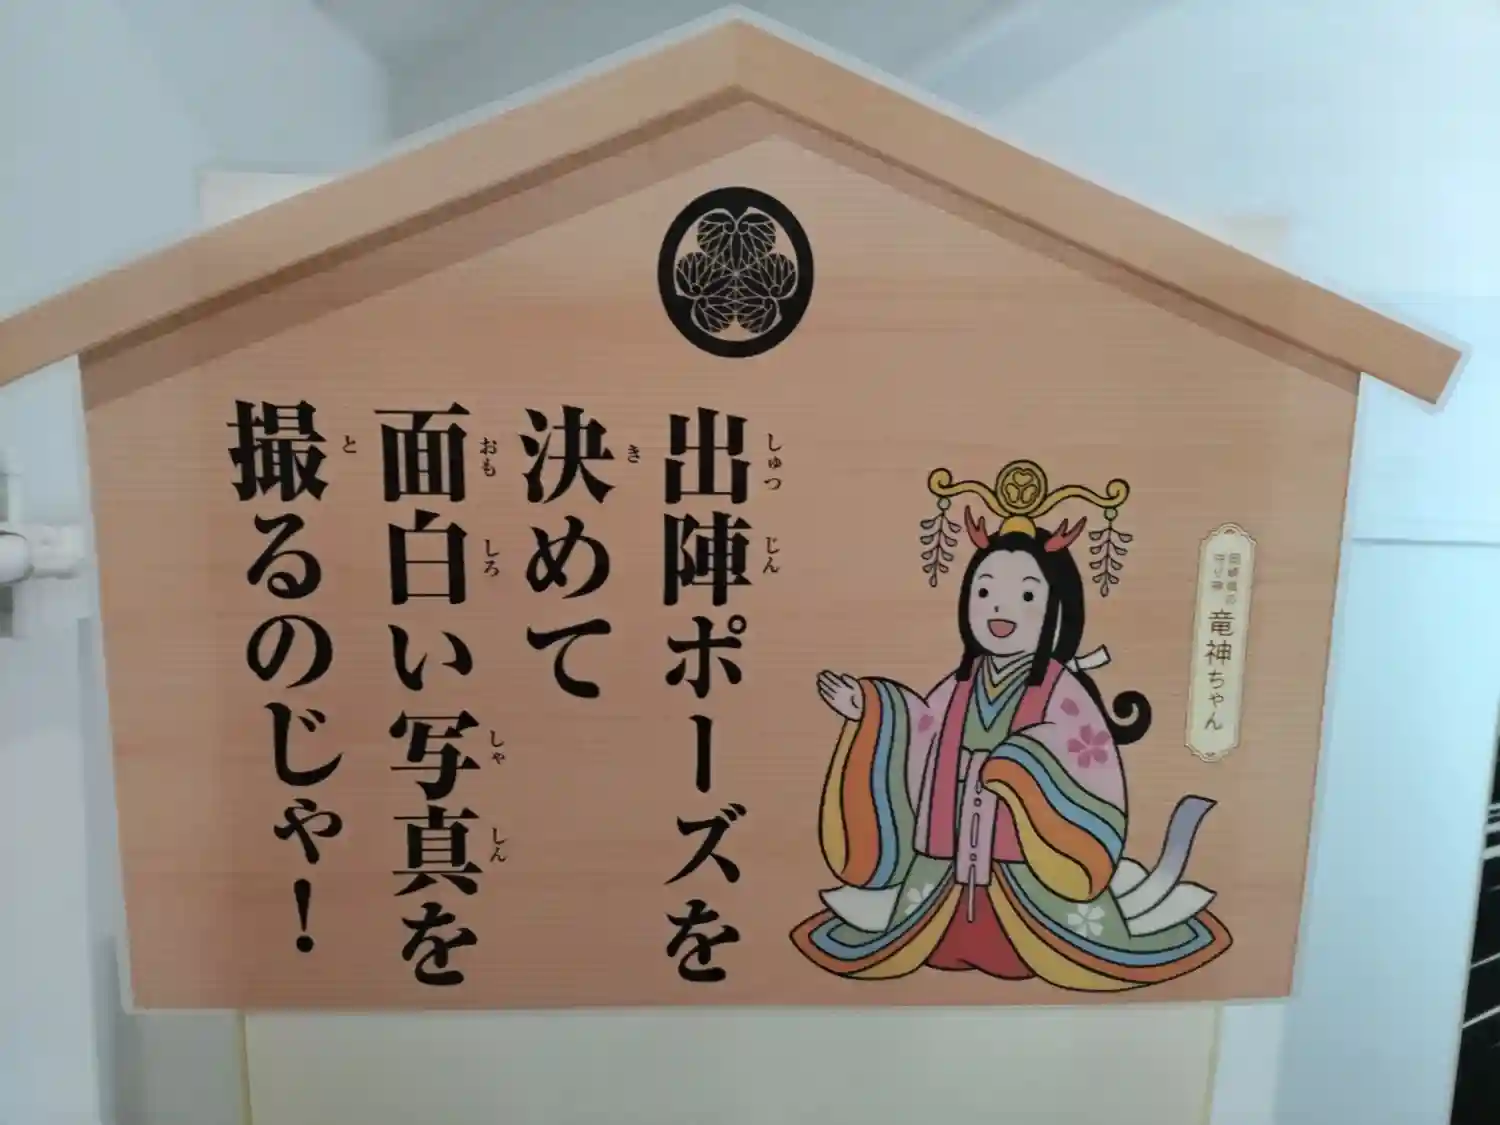 出陣ポーズを
決めて
面白い写真を
撮るのじゃ!
しゅつ じん
き
おも しろ しゃ しん
と
岡崎城の
守り神
竜神ちゃん